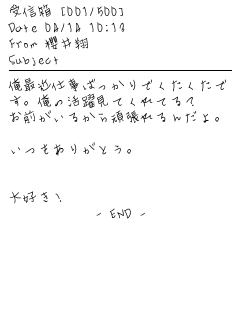 受信箱 [001/500]
Date 04/14 10:18
From 櫻井翔
Subject
俺最近仕事ばっかりでくたくたで
す。俺の活躍見てくれてる?
お前がいるから頑張れるんだよ。
いつもありがとう。
大好き!
- END -